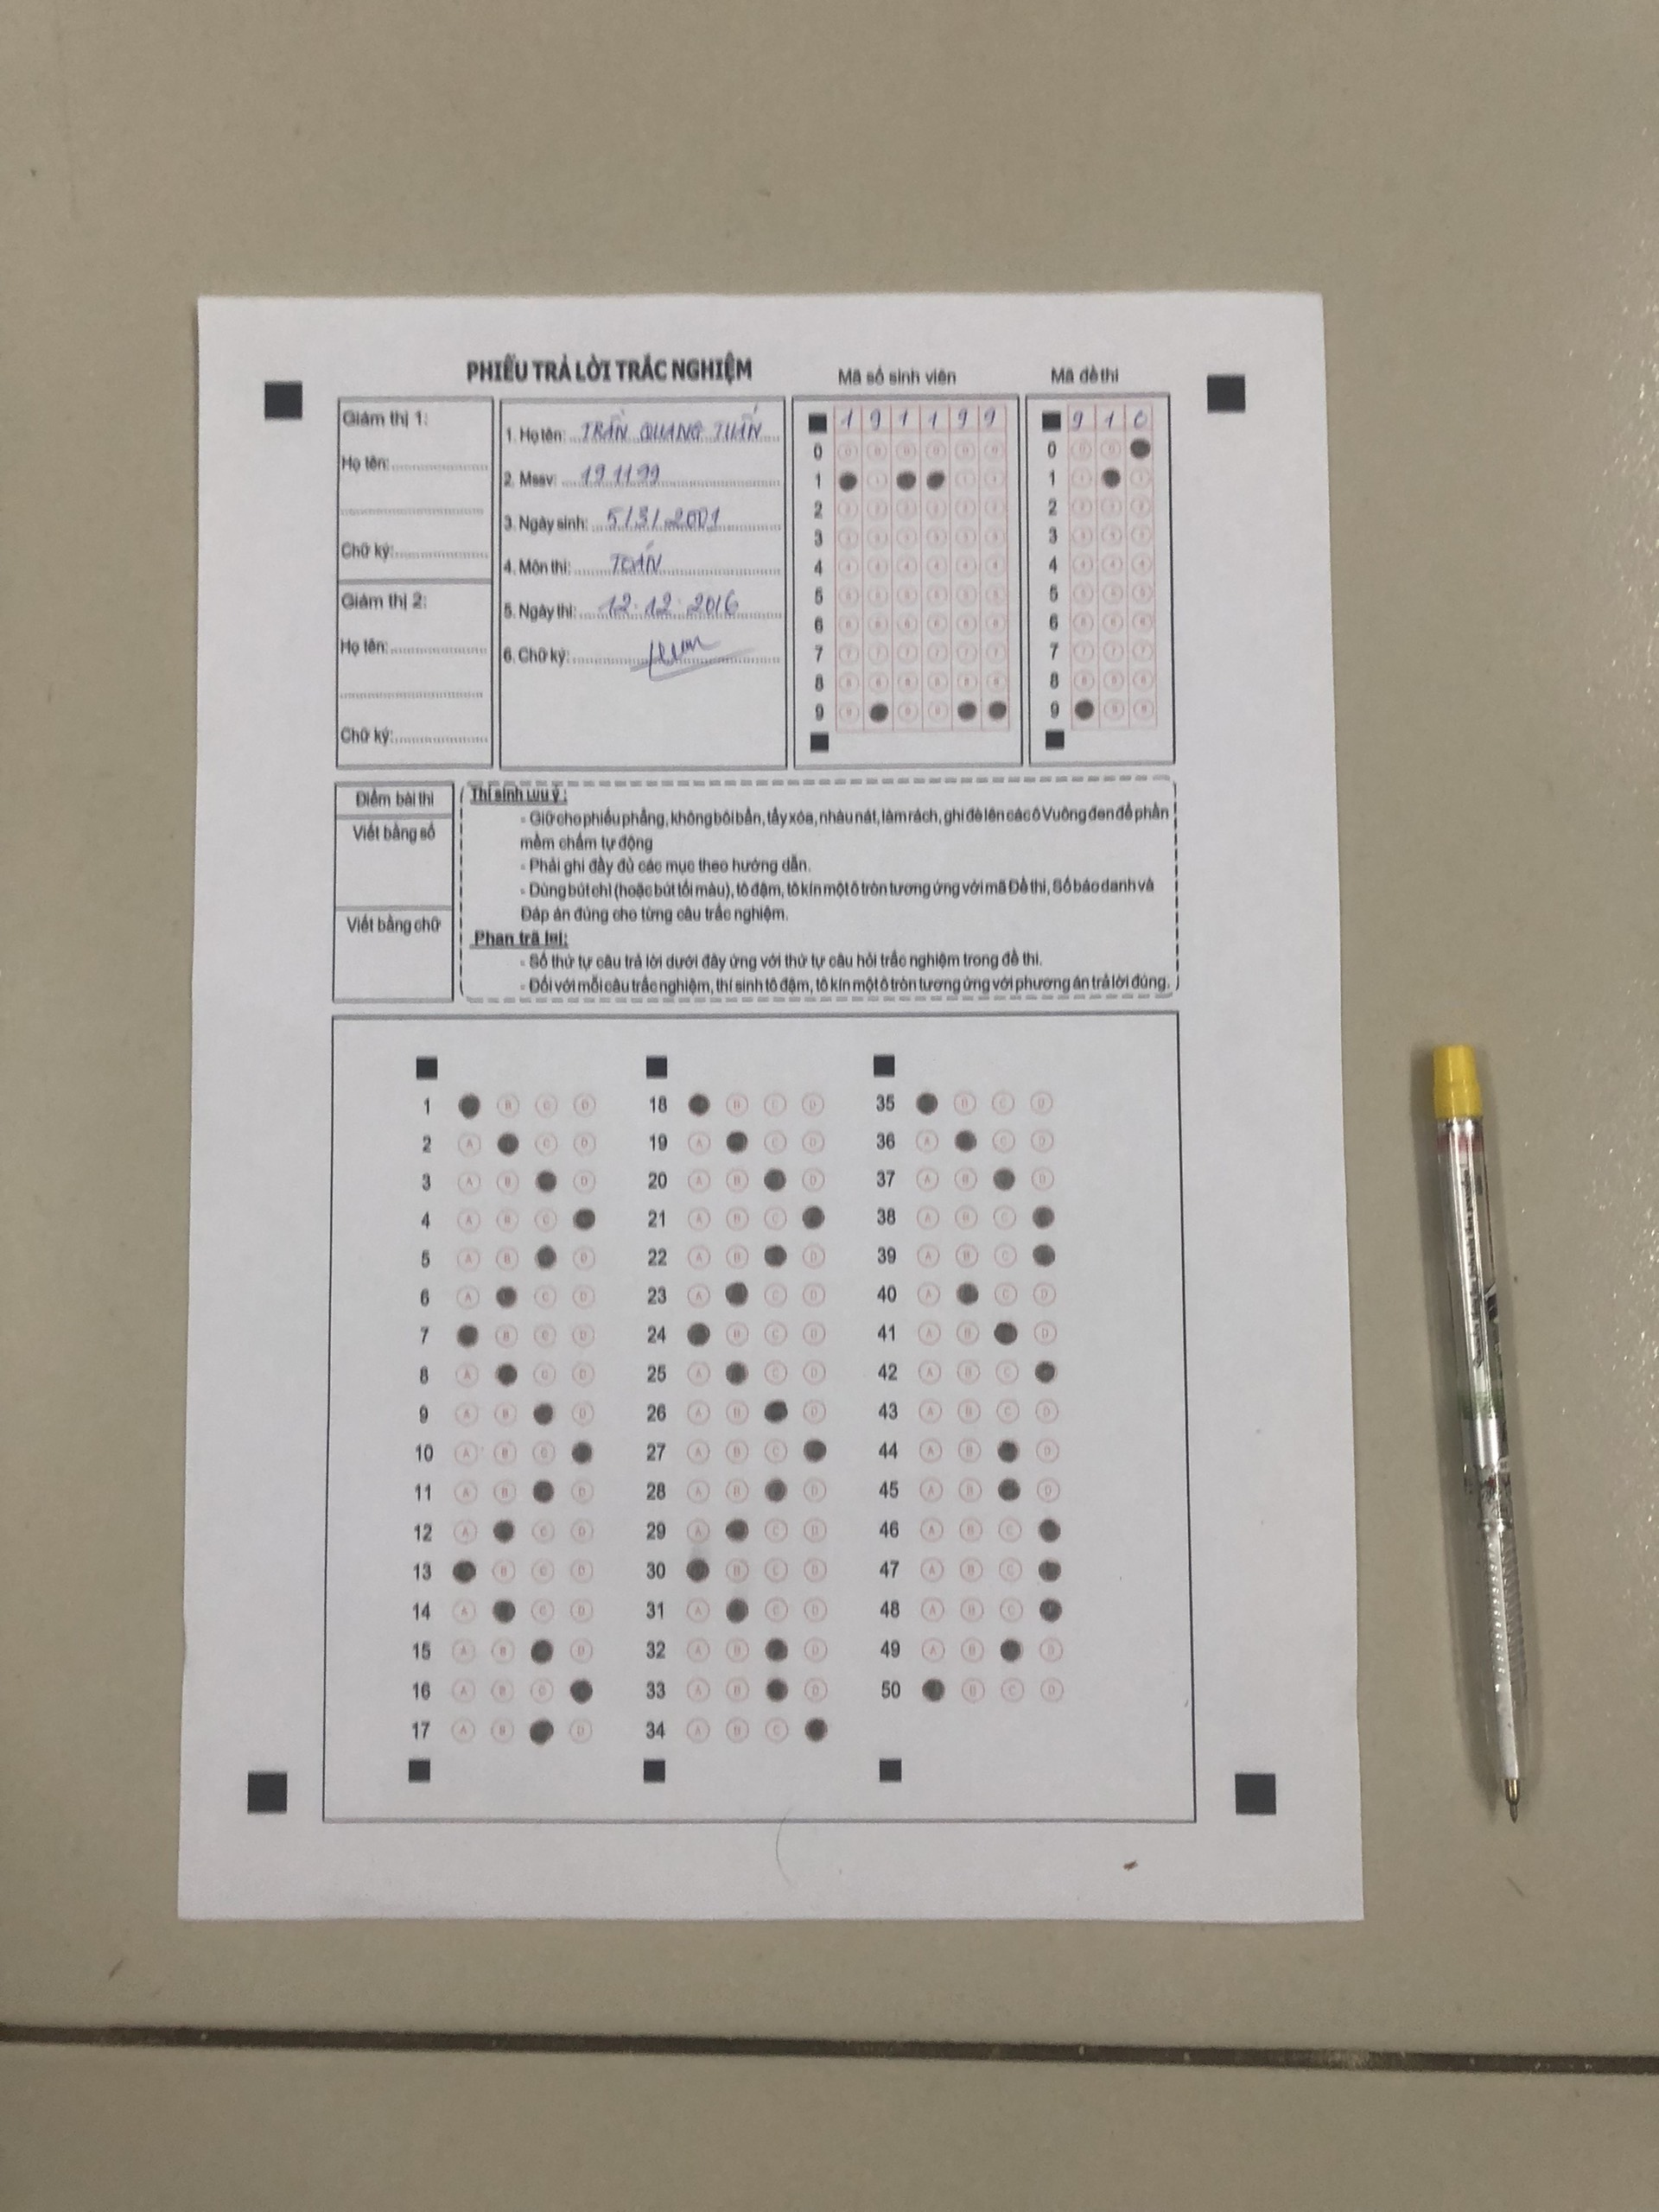 PHIẾU TRẢ LỜI TRẮC NGHIỆM
Mã số sinh viên
Mã đề thi
Giám thị 1:
Họ tên:
Chữ ký:
Giám thị 2:
Họ tên:
Chữ ký:
1. Họ tên: TRẦN QUANG TUẤN
2. Mssv: 191199
3. Ngày sinh: 5/3/2001
4. Môn thi: TOÁN
5. Ngày thi: 12.12.2016
6. Chữ ký:
1 9 1 1 9 9
0
1
2
3
4
5
6
7
8
9
9 1 0
0
1
2
3
4
5
6
7
8
9
Điểm bài thi
Viết bằng số
Viết bằng chữ
Thí sinh lưu ý:
- Giữ cho phiếu phẳng, không bôi bẩn, tẩy xóa, nhàu nát, làm rách, ghi đè lên các ô Vuông đen để phần
mềm chấm tự động
- Phải ghi đầy đủ các mục theo hướng dẫn.
- Dùng bút chì (hoặc bút tối màu), tô đậm, tô kín một ô tròn tương ứng với mã Đề thi, Số báo danh và
Đáp án đúng cho từng câu trắc nghiệm.
Phan trã lei:
- Số thứ tự câu trả lời dưới đây ứng với thứ tự câu hỏi trắc nghiệm trong đề thi.
- Đối với mỗi câu trắc nghiệm, thí sinh tô đậm, tô kín một ô tròn tương ứng với phương án trả lời đúng.
1 B C D
2 A C D
3 A B D
4 A B C
5 A B D
6 A C D
7 B C D
8 A C D
9 A B D
10 A B C
11 A B D
12 A C D
13 B C D
14 A C D
15 A B D
16 A B C
17 A B D
18 B C D
19 A C D
20 A B D
21 A B C
22 A B D
23 A C D
24 B C D
25 A C D
26 A B D
27 A B C
28 A B D
29 A C D
30 B C D
31 A C D
32 A B D
33 A B D
34 A B C
35 B C D
36 A C D
37 A B D
38 A B C
39 A B C
40 A C D
41 A B D
42 A B C
43 A B C D
44 A B D
45 A B D
46 A B C
47 A B C
48 A B C
49 A B D
50 B C D